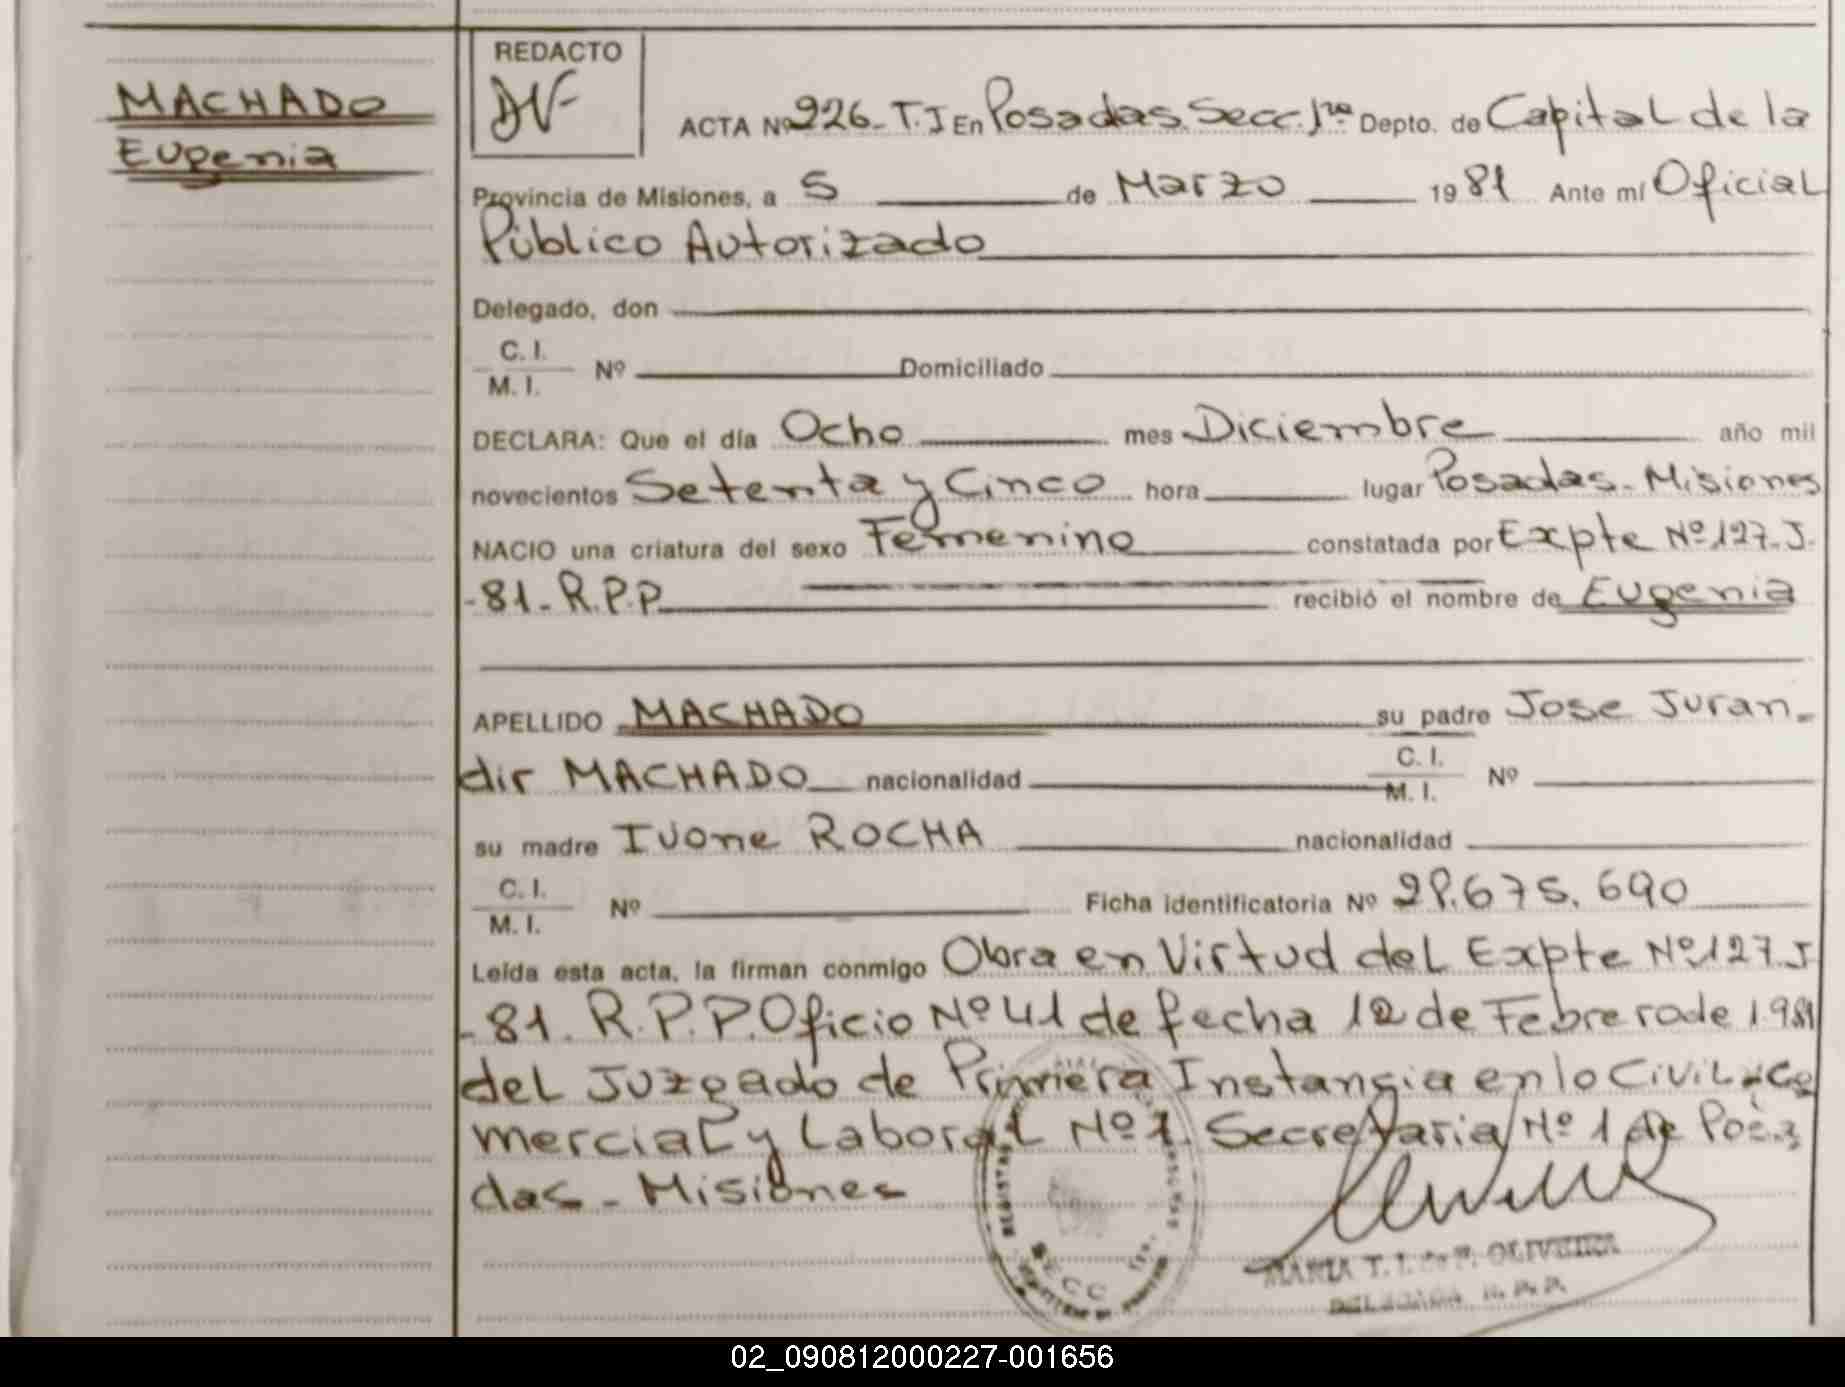 MACHADO
Eugenia
REDACTO
ACTA Nº 226-T.J En Posadas. Secc. 1ra Depto. de Capital de la
Provincia de Misiones, a 5 de Marzo 1981 Ante mí Oficial
Público Autorizado
Delegado, don
C. I.
M. I. Nº Domiciliado
DECLARA: Que el día Ocho mes Diciembre año mil
novecientos Setenta y Cinco hora lugar Posadas-Misiones
NACIO una criatura del sexo Femenino constatada por Expte Nº 127-J-
-81-R.P.P. recibió el nombre de Eugenia
APELLIDO MACHADO su padre Jose Juran-
dir MACHADO nacionalidad C. I. M. I. Nº
su madre Ivone ROCHA nacionalidad
C. I.
M. I. Nº Ficha identificatoria Nº 28.675.690
Leída esta acta, la firman conmigo Obra en Virtud del Expte Nº 127-J
-81. R.P.P. Oficio Nº 41 de fecha 12 de Febrero de 1.981
del Juzgado de Primera Instancia en lo Civil, Co
mercial y Laboral Nº 1 Secretaria Nº 1 de
das - Misiones
SECC
MARIA T. I. de P. OLIVEIRA
DELEGADA R. P. P.
02_090812000227-001656